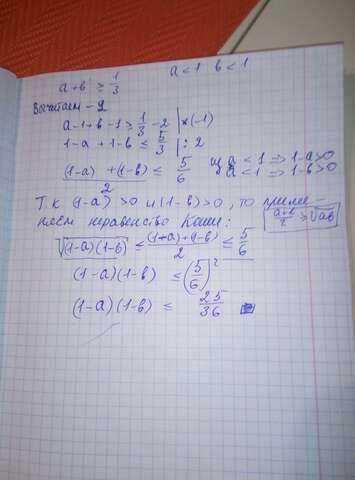 a < 1 b < 1
a + b ≥ 1/3
Вычитаем - 2
a - 1 + b - 1 ≥ 1/3 - 2 | ×(-1)
1 - a + 1 - b ≤ 5/3 | : 2
((1-a) + (1-b))/2 ≤ 5/6 a < 1 ⇒ 1-a > 0
a < 1 ⇒ 1-b > 0
Т.к (1-a) > 0 и (1-b) > 0, то приме-
неравенство Коши: (a+b)/2 ≥ √ab
√(1-a)(1-b) ≤ ((1+a)+(1-b))/2 ≤ 5/6
(1-a)(1-b) ≤ (5/6)²
(1-a)(1-b) ≤ 25/36